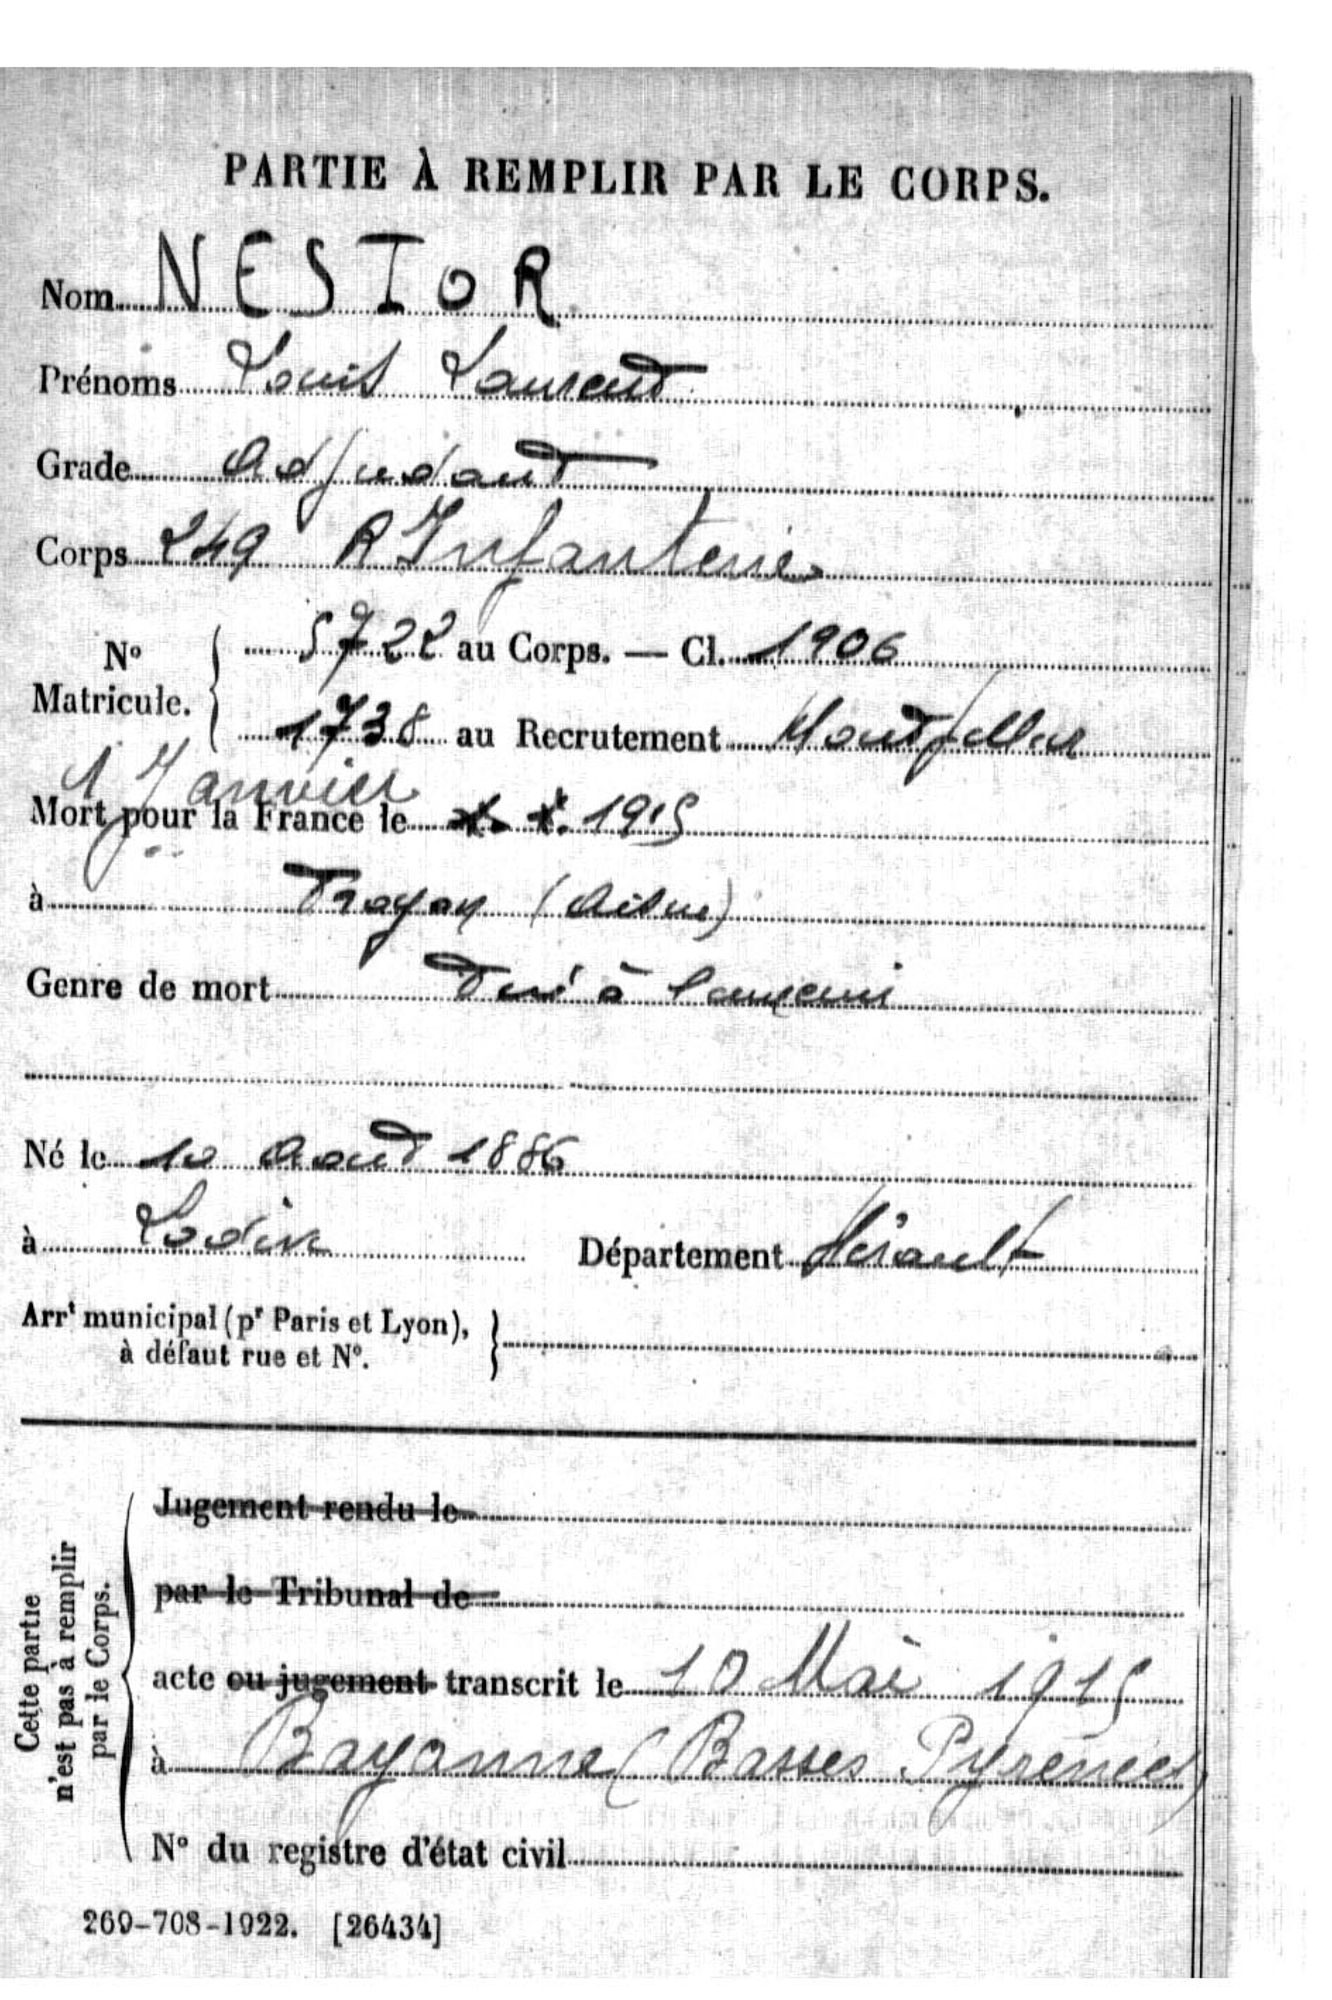 PARTIE À REMPLIR PAR LE CORPS.
Nom NESTOR
Prénoms Louis Laurent
Grade Adjudant
Corps 249 R Infanterie
N° Matricule. 5722 au Corps. — Cl. 1906
1738 au Recrutement Montpellier
1 Janvier
Mort pour la France le 1. 1. 1915
à Troyon (Aisne)
Genre de mort Tué à l'ennemi
Né le 10 Aout 1886
à Lodève Département Hérault
Arrt municipal (pr Paris et Lyon),
à défaut rue et N°.
Cette partie
n'est pas à remplir
par le Corps.
Jugement rendu le
par le Tribunal de
acte ou jugement transcrit le 10 Mai 1915
à Bayonne (Basses Pyrénées)
N° du registre d'état civil
269-708-1922. [26434]